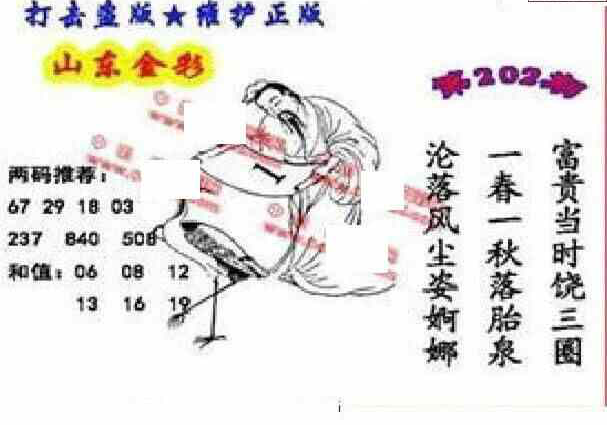 打击盗版★维护正版
山东金彩
第202期
两码推荐：
67 29 18 03
237 840 508
和值：06 08 12
13 16 19
1
富贵当时饶三圈
一春一秋落胎泉
沦落风尘姿婀娜